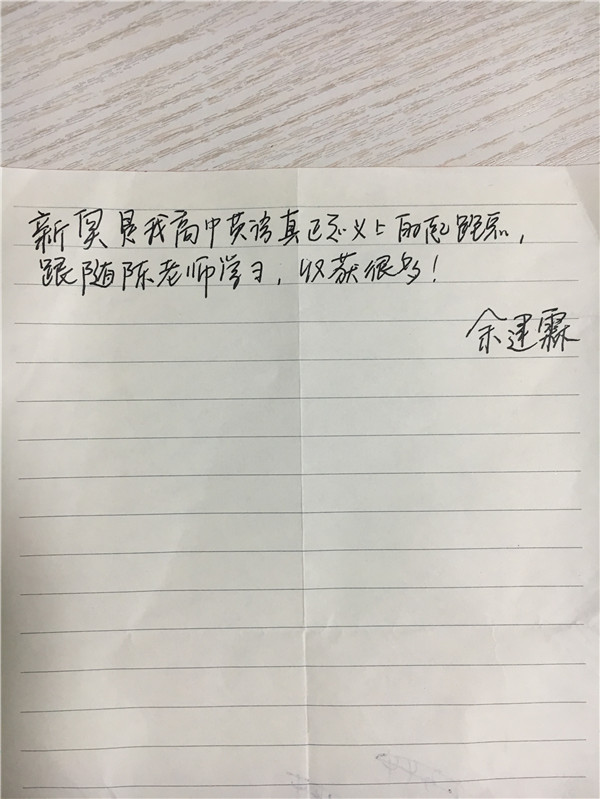 新昊是我高中英语真正意义上的起跑点，
跟随陈老师学习，收获很多！
余建霖